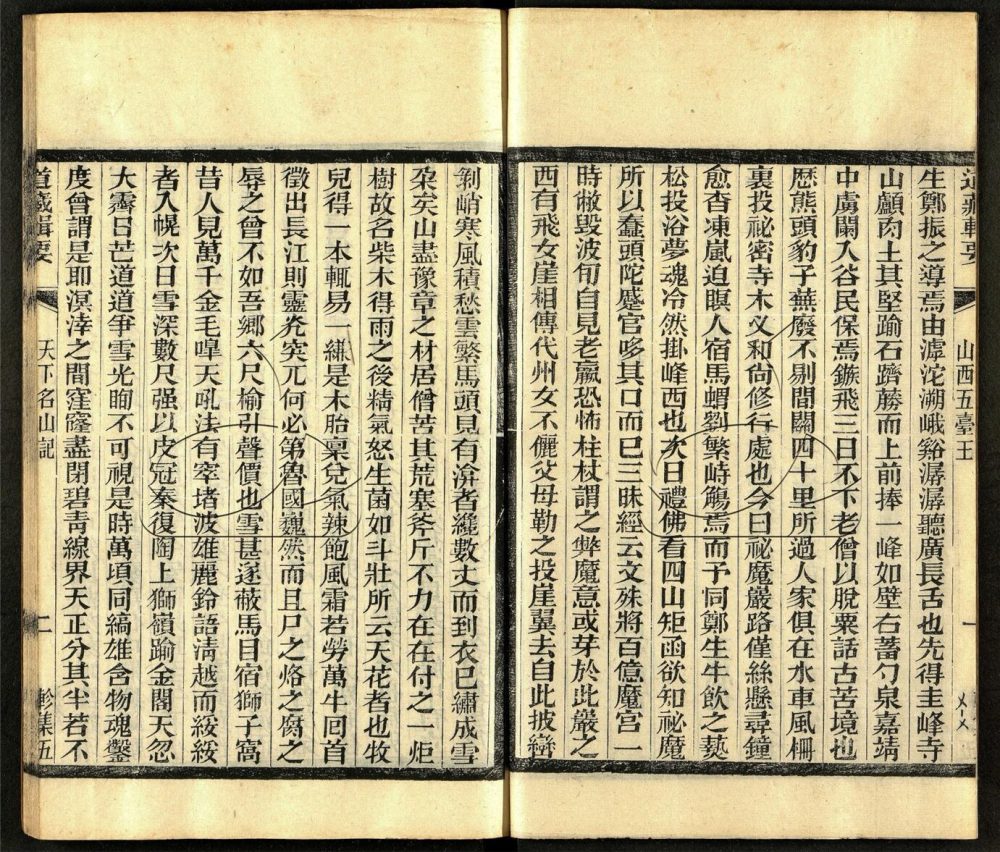 道藏輯要 山西五臺王 一
生鄭振之導焉由滹沱溯峨谿潺潺聽廣長舌也先得圭峰寺
山顱肉土其堅踰石躋蕂而上前捧一峰如壁右蓄勺泉嘉靖
中虜闌入谷民保焉鏃飛三日不下老僧以脫粟話古苦境也
歷熊頭豹子蕪廢不剔間關四十里所過人家俱在水車風柵
裏投祕密寺木义和尙修行處也今曰祕魔嚴路僅絲懸尋鐘
愈杳凍嵐迫瞑人宿馬蝟劉繁峙觴焉而予同鄭生牛飮之爇
松投浴夢魂冷然掛峰西也次日禮佛看四山矩函欲知祕魔
所以蠢頭陀蹙官哆其口而已三昧經云文殊將百億魔宫一
時敝毀波旬自見老羸恐怖柱杖謂之弊魔意或芽於此嚴之
西有飛女崖相傳代州女不儷父母勒之投崖翼去自此披巒
剝峭寒風積愁雲繁馬頭見有渰者纔數丈而到衣已繡成雪
朶矣山盡豫章之材居僧苦其荒塞斧斤不力在在付之一炬
樹故名柴木得雨之後精氣怒生菌如斗壯所云天花者也牧
兒得一本輒易一縑是木胎稟兌氣辣飽風霜若勞萬牛回首
徵出長江則靈充突兀何必第魯國巍然而且尸之烙之腐之
辱之曾不如吾鄕六尺榆引聲價也雪甚遂蔽馬目宿獅子窩
昔人見萬千金毛嘷天吼法有窣堵波雄麗鈴語淸越而綏綏
者入幌次日雪深數尺强以皮冠秦復陶上獅嶺踰金閣天忽
大霽日芒道道爭雪光眴不可視是時萬頃同縞雄含物魂鑿
度曾謂是耶溟涬之間窪窿盡閉碧靑線界天正分其半若不
道藏輯要 天下名山記 二 軫集五